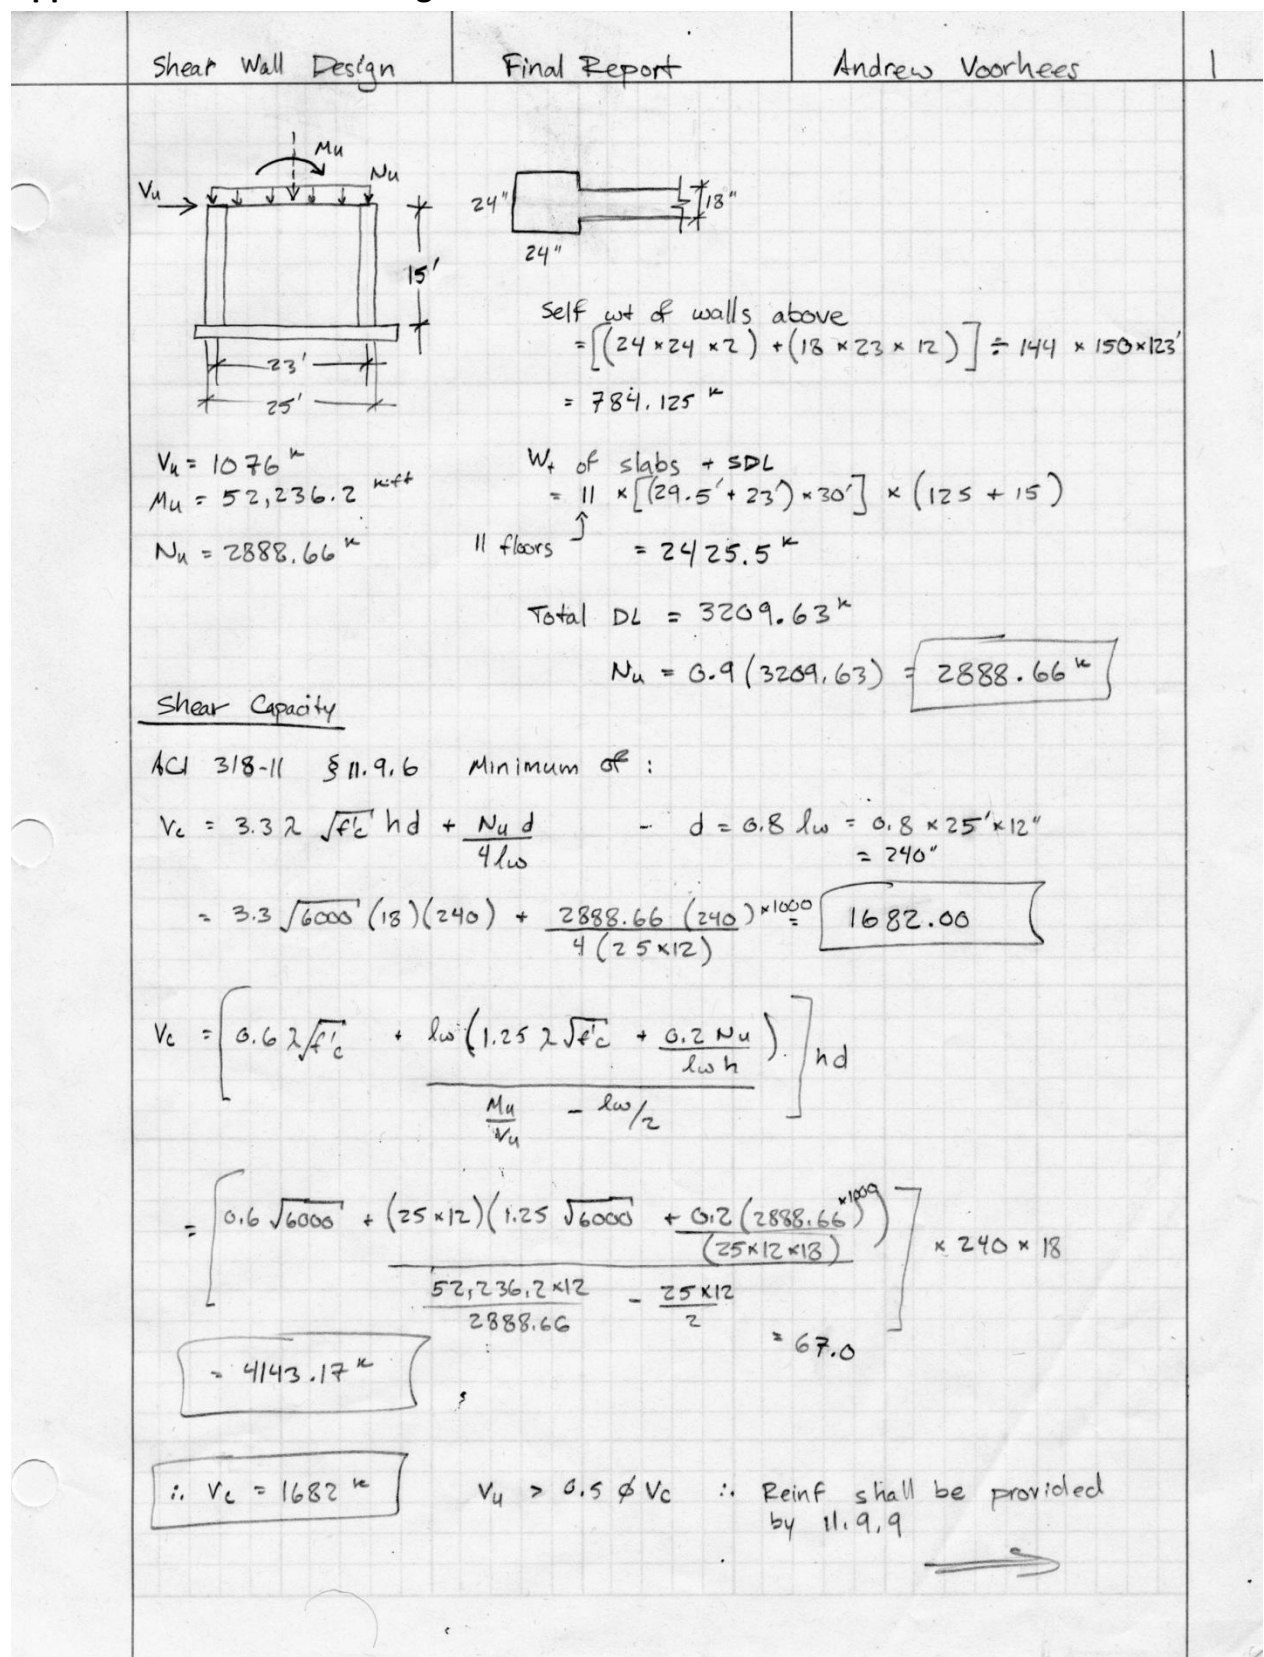 Shear Wall Design Final Report Andrew Voorhees 1
Mu
Nu
Vu
15'
23'
25'
24"
18"
24"
Self wt of walls above
= [(24 × 24 × 2) + (18 × 23 × 12)] ÷ 144 × 150 × 123'
= 784.125 k
Vu = 1076 k
Mu = 52,236.2 k·ft
Nu = 2888.66 k
Wt of slabs + SDL
= 11 × [(29.5' + 23') × 30'] × (125 + 15)
11 floors
= 2425.5 k
Total DL = 3209.63 k
Nu = 0.9 (3209.63) = 2888.66 k
Shear Capacity
ACI 318-11 § 11.9.6 Minimum of :
Vc = 3.3 λ √f'c hd + Nu d / 4 lw - d = 0.8 lw = 0.8 × 25' × 12"
= 240"
= 3.3 √6000 (18)(240) + 2888.66 (240) ×1000 / 4 (25×12) = 1682.00
Vc = [0.6 λ √f'c + lw (1.25 λ √f'c + 0.2 Nu / lw h) / Mu / Vu - lw/2] hd
= [0.6 √6000 + (25 × 12)(1.25 √6000 + 0.2 (2888.66 ×1000) / (25×12×18)) / 52,236.2×12 / 2888.66 - 25×12 / 2] × 240 × 18
= 67.0
= 4143.17 k
∴ Vc = 1682 k Vu > 0.5 φ Vc ∴ Reinf shall be provided
by 11.9.9